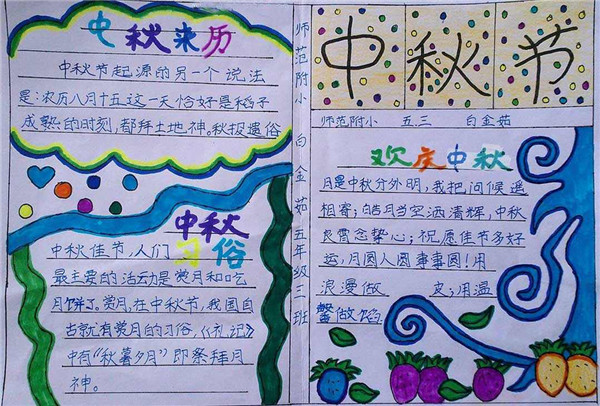 中秋来历
中秋节起源的另一个说法
是:农历八月十五这一天恰好是稻子
成熟的时刻,都拜土地神。秋报遗俗
中秋
习俗
中秋佳节,人们
最主要的活动是赏月和吃
月饼了。赏月,在中秋节,我国自
古就有赏月的习俗,《礼记》
中有“秋暮夕月”即祭拜月
神。
师范附小 白金茹 五年级三班
中秋节
师范附小 五.三 白金茹
欢庆中秋
月是中秋分外明,我把问候遥
相寄;皓月当空洒清辉,中秋
良宵念挚心;祝愿佳节多好
运,月圆人圆事事圆!用
浪漫做 皮;用温
馨做馅